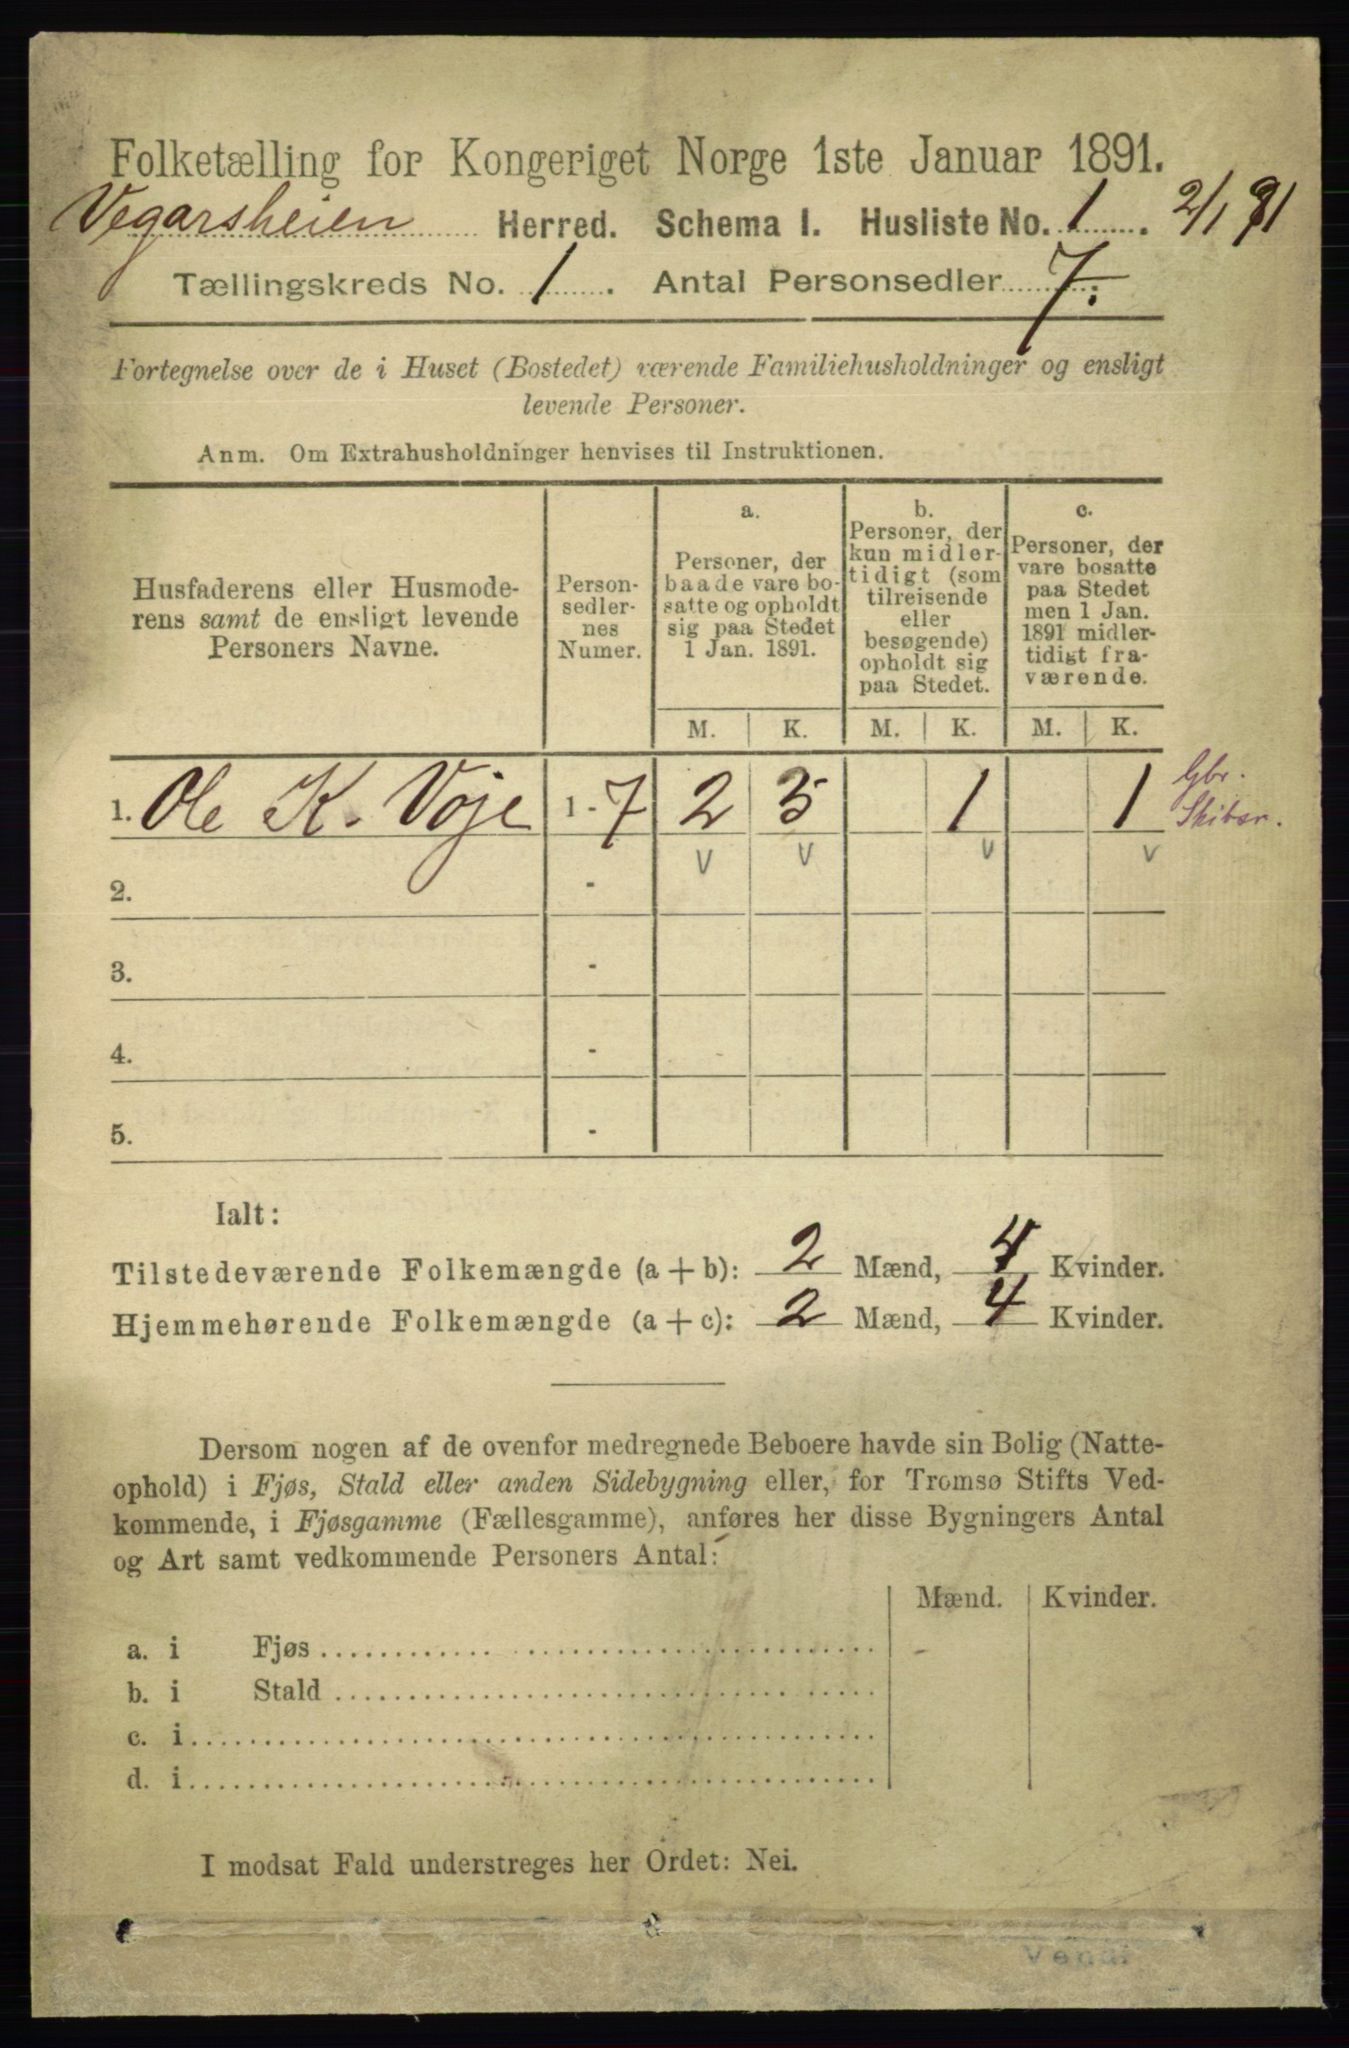 Folketælling for Kongeriget Norge 1ste Januar 1891.
Vegarsheien Herred. Schema I. Husliste No. 1. 2/1 91
Tællingskreds No. 1. Antal Personsedler 7.
Fortegnelse over de i Huset (Bostedet) værende Familiehusholdninger og ensligt
levende Personer.
Anm. Om Extrahusholdninger henvises til Instruktionen.
Husfaderens eller Husmode-
rens samt de ensligt levende
Personers Navne.
Person-
sedler-
nes
Numer.
a.
Personer, der
baade vare bo-
satte og opholdt
sig paa Stedet
1 Jan. 1891.
b.
Personer, der
kun midler-
tidigt (som
tilreisende
eller
besøgende)
opholdt sig
paa Stedet.
c.
Personer, der
vare bosatte
paa Stedet
men 1 Jan.
1891 midler-
tidigt fra-
værende.
M. K. M. K. M. K.
1. Ole K. Voje 1 - 7 2 3 1 1 Gbr. Skibsr.
v v v v
2. -
3. -
4. -
5. -
Ialt:
Tilstedeværende Folkemængde (a + b): 2 Mænd, 4 Kvinder.
Hjemmehørende Folkemængde (a + c): 2 Mænd, 4 Kvinder.
Dersom nogen af de ovenfor medregnede Beboere havde sin Bolig (Natte-
ophold) i Fjøs, Stald eller anden Sidebygning eller, for Tromsø Stifts Ved-
kommende, i Fjøsgamme (Fællesgamme), anføres her disse Bygningers Antal
og Art samt vedkommende Personers Antal:
Mænd. Kvinder.
a. i Fjøs
b. i Stald
c. i
d. i
I modsat Fald understreges her Ordet: Nei.
Vend!